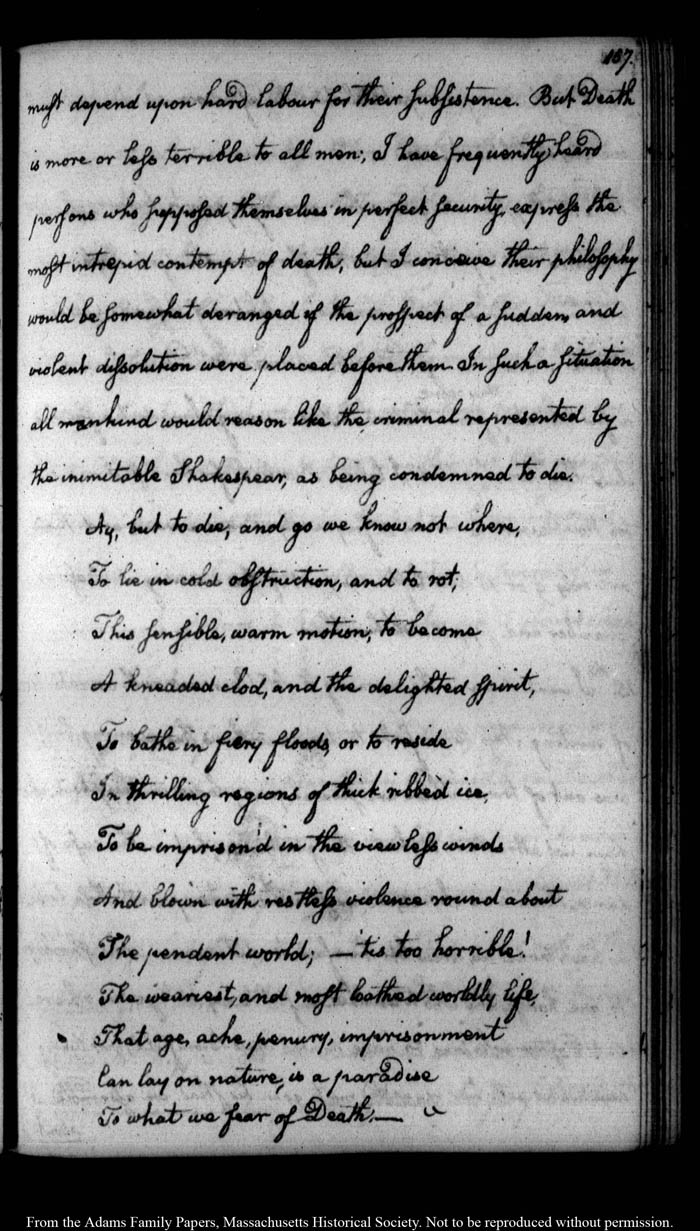 187.
must depend upon hard labour for their subsistence. But Death
is more or less terrible to all men; I have frequently heard
persons who supposed themselves in perfect security, express the
most intrepid contempt of death, but I conceive their philosophy
would be somewhat deranged if the prospect of a sudden, and
violent dissolution were placed before them. In such a situation
all mankind would reason like the criminal represented by
the inimitable Shakespear, as being condemned to die.
Ay, but to die, and go we know not where,
To lie in cold obstruction, and to rot;
This sensible, warm motion, to become
A kneaded clod, and the delighted spirit,
To bathe in fiery floods, or to reside
In thrilling regions of thick ribbèd ice,
To be imprison'd in the viewless winds
And blown with restless violence round about
The pendent world; — 'tis too horrible!
The weariest, and most loathed worldly life,
That age, ache, penury, imprisonment
Can lay on nature, is a paradise
To what we fear of Death. —
From the Adams Family Papers, Massachusetts Historical Society. Not to be reproduced without permission.